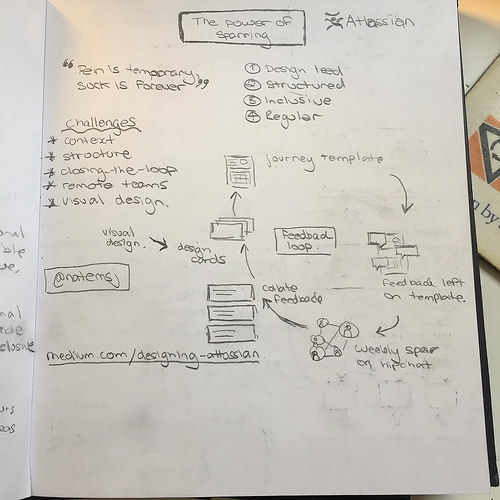 The power of
sparring
Atlassian
"Pain is temporary,
suck is forever"
1 Design lead
2 Structured
3 Inclusive
4 Regular
Challenges
* context
* structure
* closing-the-loop
* remote teams
* visual design.
journey template
visual
design.
design
cards
Feedback
loop.
feedback left
on template.
@natemsj
collate
feedback
weekly spar
on hipchat
medium.com/designing-atlassian